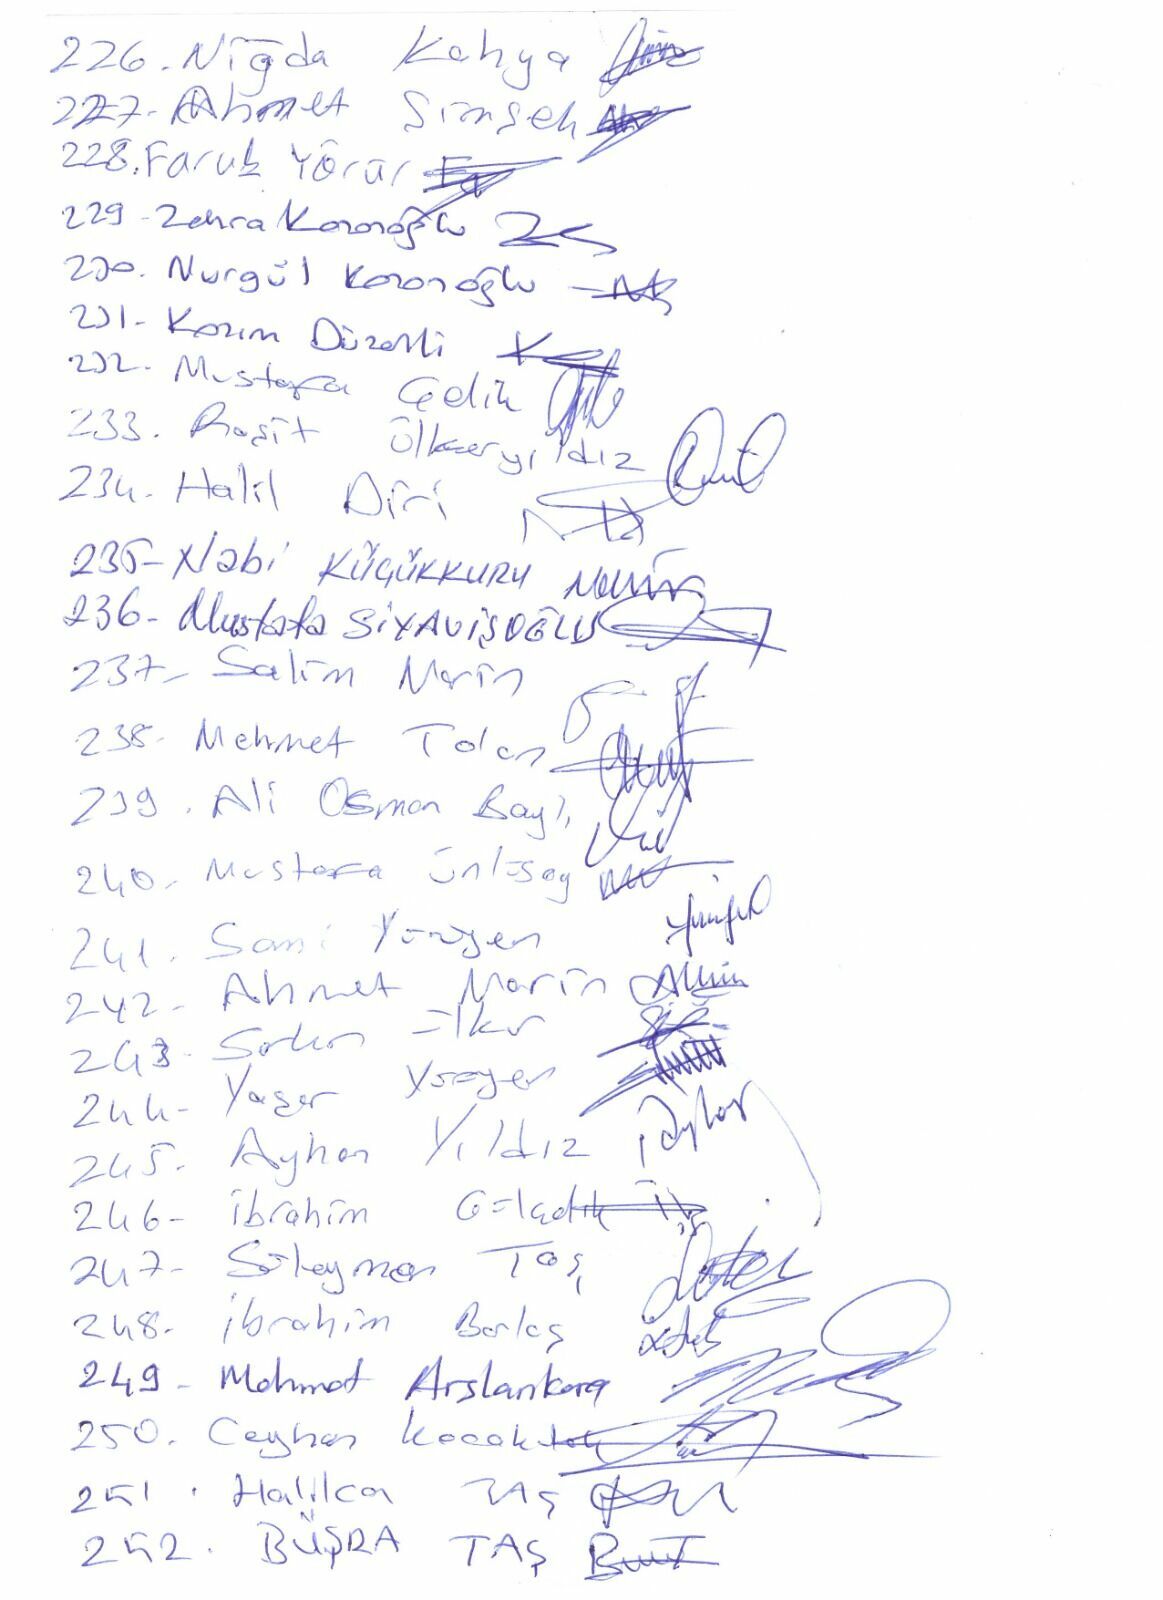 226. Niğda Kahya
227- Ahmet Şimşek
228. Faruk Yörür
229 - Zehra Koronoğlu
230. Nurgül Koronoğlu
231- Kazım Düzenli
232. Mustafa Gedik
233. Raşit Ülkeryıldız
234. Halil Diri
235- Nebi KÜÇÜKKURU
236- Mustafa SİYAVİŞOĞLU
237- Salim Narin
238- Mehmet Tolan
239. Ali Osman
240. Mustafa Ünlüsoy
241. Sami
242- Ahmet Narin
243-
244- Yaşar
245. Ayhan Yıldız
246- İbrahim
247- Süleyman Taş
248- İbrahim
249- Mehmet Arslankara
250. Ceyhan
251. TAŞ
252. BÜŞRA TAŞ